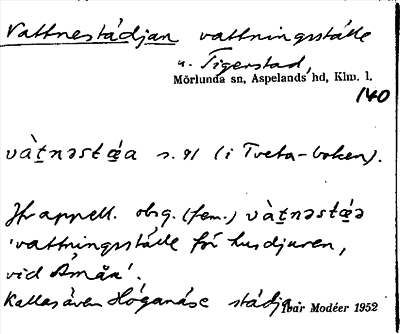 Vattnestádjan vattningsställe
u. Tigerstad,
Mörlunda sn, Aspelands hd, Klm. l.
140
vàt̠nəstá̠a s. 91 (i Tveta-boken).
Jfr appell. obrg. (fem.) vàt̠nəstá̠ə
'vattningsställe för husdjuren,
vid Åmåa'.
Kallas även Höganäse stádja.
Ivar Modéer 1952